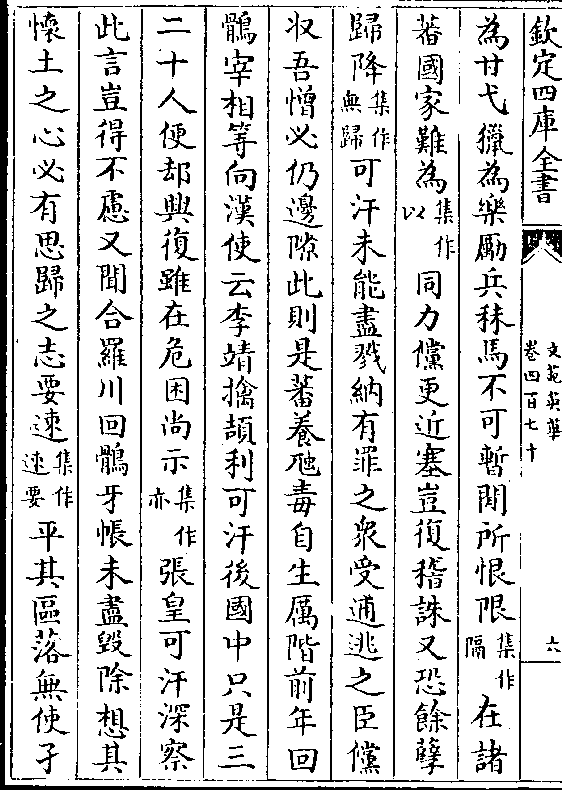 欽定四庫全書
文苑英華
卷四百七十
六
為廿弋獵為樂勵兵秣馬不可暫閒所恨限集作隔在諸
蕃國家難為集作以同力儻更近塞豈復稽誅又恐餘孽
歸降集作無歸可汗未能盡戮納有罪之衆受逋逃之臣儻
收吾憎必仍邊隙此則是蓄養虺毒自生厲階前年回
鶻宰相等向漢使云李靖擒頡利可汗後國中只是三
二十人便却興復雖在危困尚示集作亦張皇可汗深察
此言豈得不慮又聞合羅川回鶻牙帳未盡毀除想其
懷土之心必有思歸之志要速集作速要平其區落無使孑